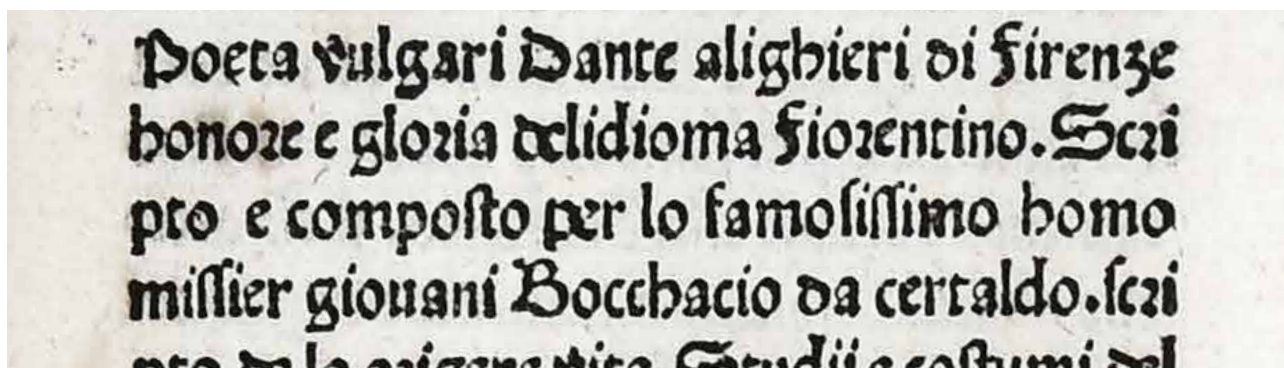 Poeta vulgari Dante alighieri di firenze
honore e gloria delidioma fiorentino. Scri
pto e composto per lo famosissimo homo
missier giouani Bocchacio da certaldo. scri
pto de la origene vita. Studii e costumi del